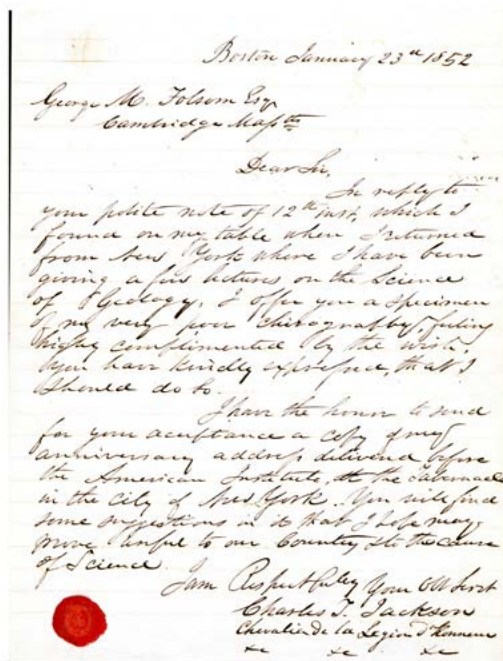 Boston January 23rd 1852
George M. Folsom Esq.
Cambridge Massts
Dear Sir,
In reply to
your polite note of 12th inst, which I
found on my table when I returned
from New York where I have been
giving a few lectures on the Science
of Geology, I offer you a specimen
of my very poor chirography, feeling
highly complimented by the wish,
you have kindly expressed, that I
should do so.
I have the honor to send
for your acceptance a copy of my
anniversary address delivered before
the American Institute, at the Tabernacle
in the City of New York. You will find
some suggestions in it that I hope may
prove useful to our Country & to the cause
of Science.
I am Respectfully Your Obt Servt
Charles T. Jackson
Chevalier de la Legion d'Honneur
&c &c &c